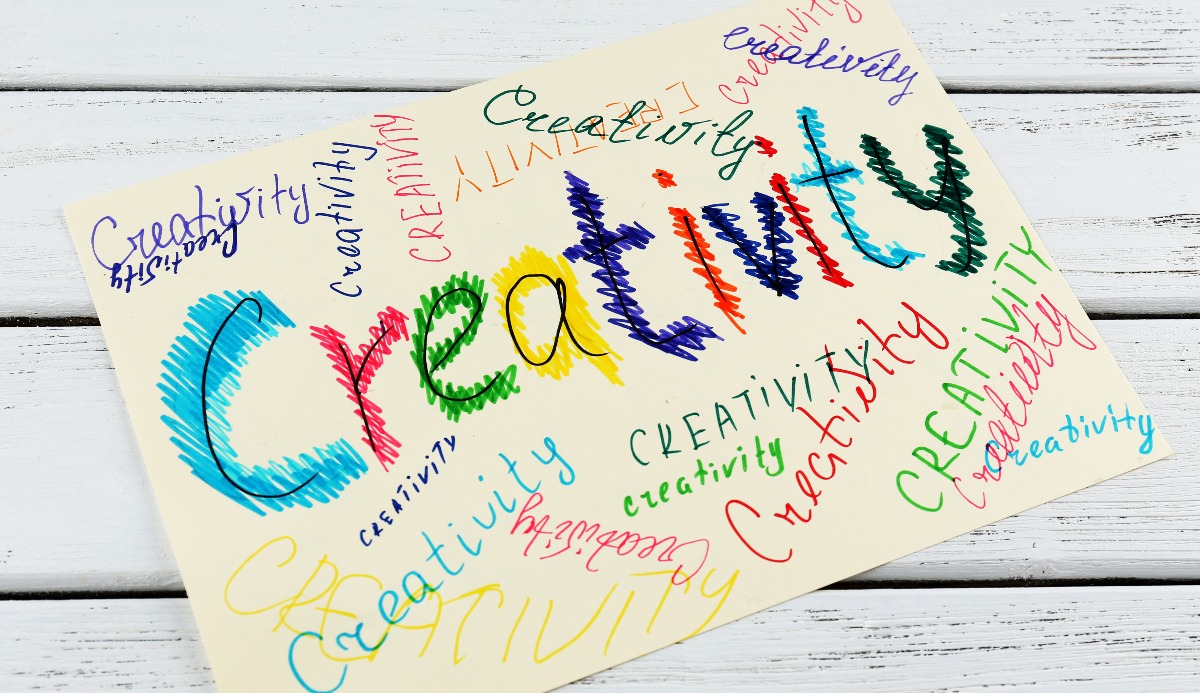 Creativity
creativity
Creativity
CREATIVITY
CREATIVITY
Creativity
Creativity
Creativity
Creativity
CREATIVITY
creativity
Creativity
CREATIVITY
Creativity
Creativity
CREATIVITY
Creativity
Creativity
CREATIVITY